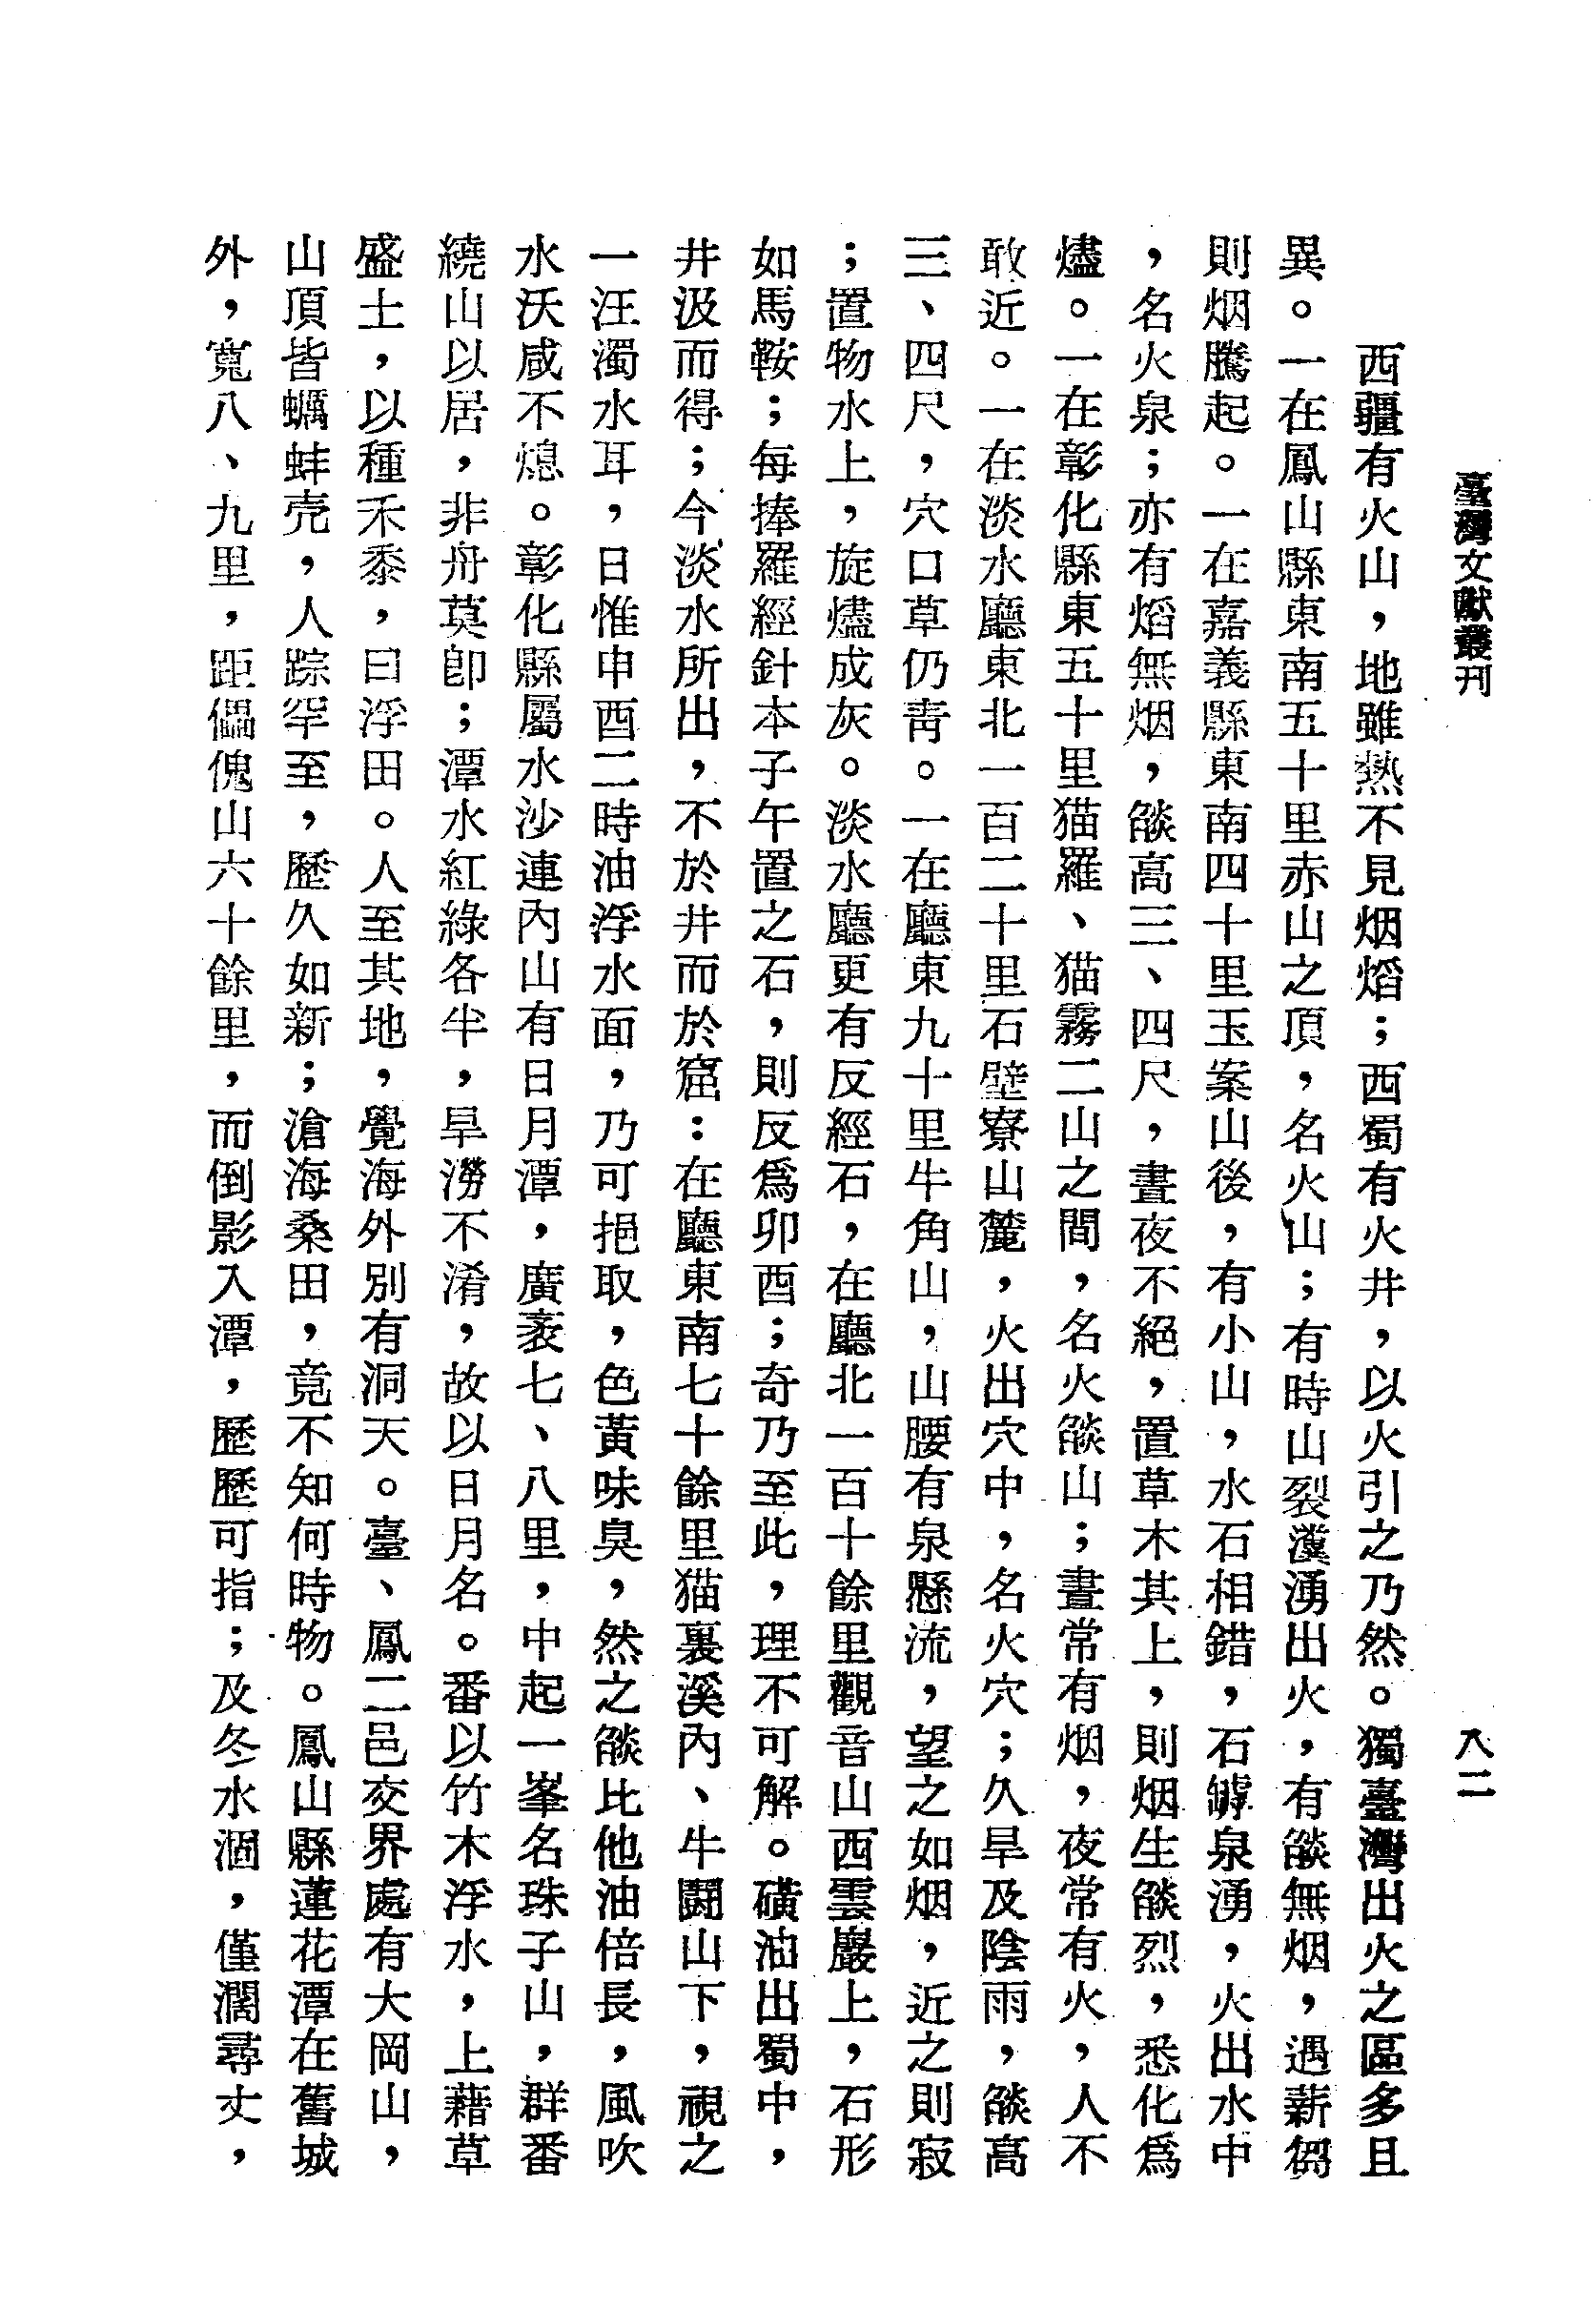 臺灣文獻叢刊
八二
西疆有火山，地雖熱不見烟熖；西蜀有火井，以火引之乃然。獨臺灣出火之區多且
異。一在鳳山縣東南五十里赤山之頂，名火山；有時山裂瀵湧出火，有燄無烟，遇薪芻
則烟騰起。一在嘉義縣東南四十里玉案山後，有小山，水石相錯，石罅泉湧，火出水中
，名火泉；亦有熖無烟，燄高三、四尺，晝夜不絕，置草木其上，則烟生燄烈，悉化爲
燼。一在彰化縣東五十里猫羅、猫霧二山之間，名火燄山；晝常有烟，夜常有火，人不
敢近。一在淡水廳東北一百二十里石壁寮山麓，火出穴中，名火穴；久旱及陰雨，燄高
三、四尺，穴口草仍靑。一在廳東九十里牛角山，山腰有泉懸流，望之如烟，近之則寂
；置物水上，旋燼成灰。淡水廳更有反經石，在廳北一百十餘里觀音山西雲巖上，石形
如馬鞍；每捧羅經針本子午置之石，則反爲卯酉；奇乃至此，理不可解。磺油出蜀中，
井汲而得；今淡水所出，不於井而於窟：在廳東南七十餘里猫裏溪內、牛鬪山下，視之
一汪濁水耳，日惟申酉二時油浮水面，乃可挹取，色黃味臭，然之燄比他油倍長，風吹
水沃咸不熄。彰化縣屬水沙連內山有日月潭，廣袤七、八里，中起一峯名珠子山，群番
繞山以居，非舟莫卽；潭水紅綠各半，旱澇不淆，故以日月名。番以竹木浮水，上藉草
盛土，以種禾黍，曰浮田。人至其地，覺海外別有洞天。臺、鳳二邑交界處有大岡山，
山頂皆蠣蚌壳，人踪罕至，歷久如新；滄海桑田，竟不知何時物。鳳山縣蓮花潭在舊城
外，寬八、九里，距傀儡山六十餘里，而倒影入潭，歷歷可指；及冬水涸，僅濶尋丈，